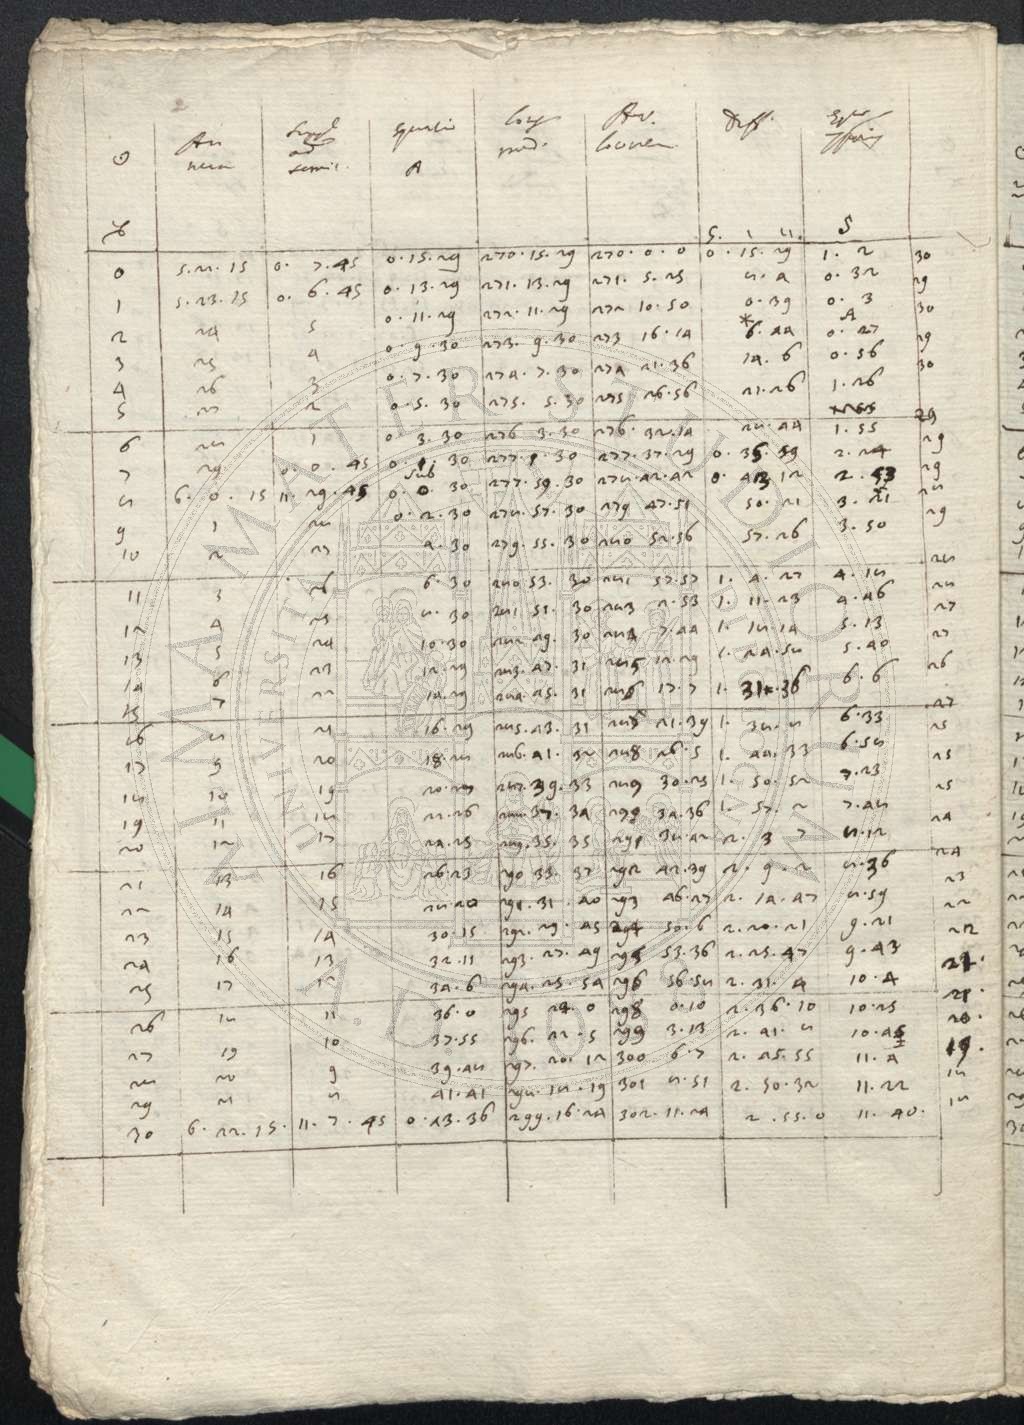 ☉ An nuu Suppl ad semic. Equatio A Long med. Diff.
♑ S. 1 11. S
0 5.22.15 0.7.45 0.15.29 270.15.29 270.0.0 0.15.29 1.2 30
1 5.23.15 0.6.45 0.13.29 271.13.29 271.5.25 8.4 0.32 29
2 24 5 0.11.29 272.11.29 272 10.50 0.39 0.3 30
3 25 4 0.9.30 273.9.30 273 16.14 *6.44 A 0.27 29
4 26 3 0.7.30 274.7.30 274 21.36 14.6 0.56 30
5 27 2 0.5.30 275.5.30 275 26.56 21.26 1.26 29
6 28 1 0.3.30 276 3.30 276.32.14 28.44 1.55 29
7 29 0.0.45 0.1.30 277.1.30 277.37.29 0.35.59 2.24 29
8 6.0.15 11.29.45 Sub 0.0.30 277.59.30 278.42.42 0.43 12 2.53 28
9 1 28 0.2.30 278.57.30 279 47.51 50.21 3.21 29
10 2 27 4.30 279.55.30 280 52.56 57.26 3.50 28
11 3 26 6.30 280 53.30 281 57.57 1.4.27 4.18 28
12 4 25 8.30 281 51.30 283 2.53 1.11.23 4.46 27
13 5 24 10.30 282 49.30 284 7.44 1.18.14 5.13 27
14 6 23 12.29 283.47.31 285 12.29 1.24.58 5.40 26
15 7 22 14.29 284.45.31 286 17.7 1.31.36 6.6 27
16 8 21 16.29 285.43.31 287 21.39 1.38.8 6.33 25
17 9 20 18.28 286.41.32 288 26.5 1.44.33 6.58 25
18 10 19 20.27 287.39.33 289 30.25 1.50.52 7.23 25
19 11 18 22.26 288.37.34 290 34.36 1.57.2 7.48 24
20 12 17 24.25 289.35.35 291 38.42 2.3 7 8.12 24
21 13 16 26.23 290 33.37 292 42.39 2.9.2 8.36 23
22 14 15 28.20 291.31.40 293 46.27 2.14.47 8.59 22
23 15 14 30.15 292.29.45 294 50.6 2.20.21 9.21 22
24 16 13 32.11 293.27.49 295 53.36 2.25.47 9.43 21.
25 17 12 34.6 294.25.54 296 56.58 2.31.4 10.4 21.
26 18 11 36.0 295 24.0 298 0.10 2.36.10 10.25 20.
27 19 10 37.55 296.22.5 299 3.13 2.41.8 10.45 19.
28 20 9 39.48 297.20.12 300 6.7 2.45.55 11.4 18
29 21 8 41.41 298.18.19 301 8.51 2.50.32 11.22 18
30 6.22.15. 11.7.45 0.43.36 299.16.24 302.11.24 2.55.0 11.40.